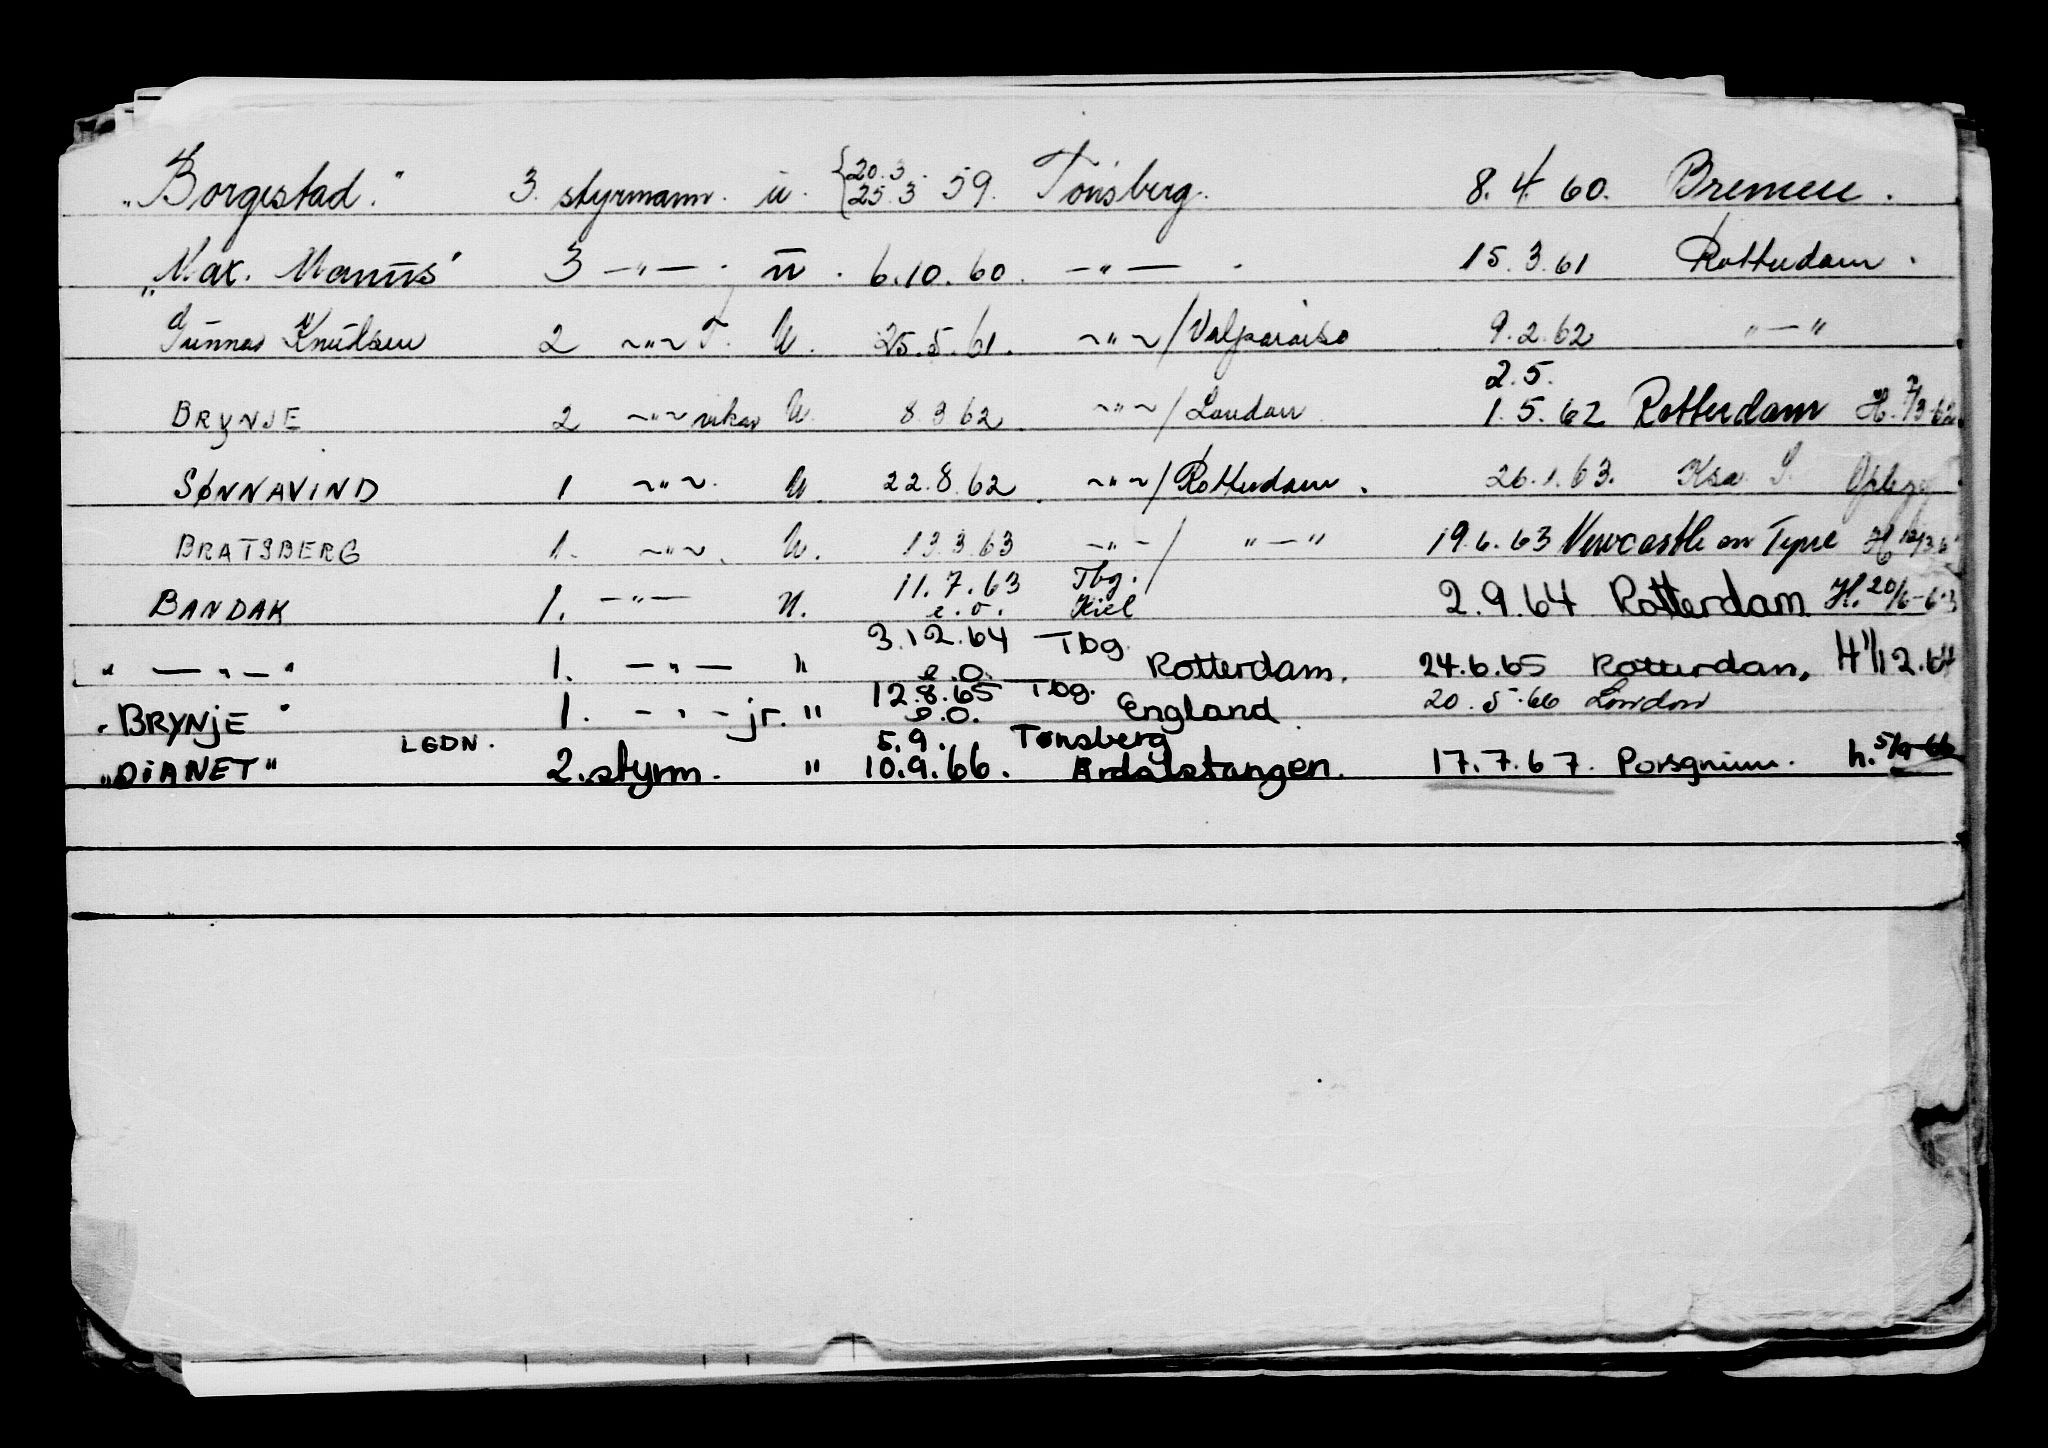 "Borgestad." 3. styrmann. u. {20.3. 25.3 59. Tönsberg. 8.4.60. Bremen.
"Max. Manus" 3 —"— . u . 6.10.60. —"— . 15.3.61 Rotterdam.
Gunnar Knudsen 2 ~"~ T. U. 25.5.61. ~"~/Valparaiso 9.2.62 "—"
2.5.
BRYNJE 2 ~"~ vikar U. 8.3.62. ~"~/London. 1.5.62 Rotterdam H. 7/3-62
SØNNAVIND 1 ~"~. U. 22.8.62. ~"~/Rotterdam. 26.1.63. Ksa S.
BRATSBERG 1. ~"~. U. 13.3.63 —"—/ "—" 19.6.63 Newcastle on Tyne H 12/3-6
11.7.63 Tbg.
BANDAK 1. —"— U. e.o. Kiel 2.9.64 Rotterdam H. 20/6-63
3.12.64 Tbg.
" — " — " 1. —"— " e.o. Rotterdam. 24.6.65 Rotterdam. H 1/12.64
12.8.65 Tbg. 20.5.66 London
"BRYNJE" 1. —"— jr. " e.o. England
LGDN. 5.9. Tønsberg
"DIANET" 2. styrm. " 10.9.66. Årdalstangen. 17.7.67. Porsgrunn. h. 5/9-66